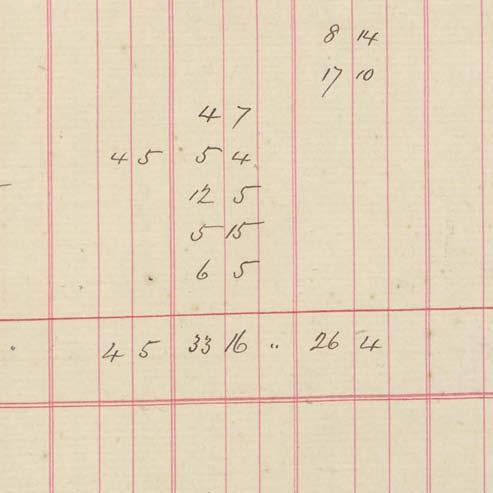 8 14
17 10
4 7
4 5 5 4
12 5
5 15
6 5
4 5 33 16 .. 26 4